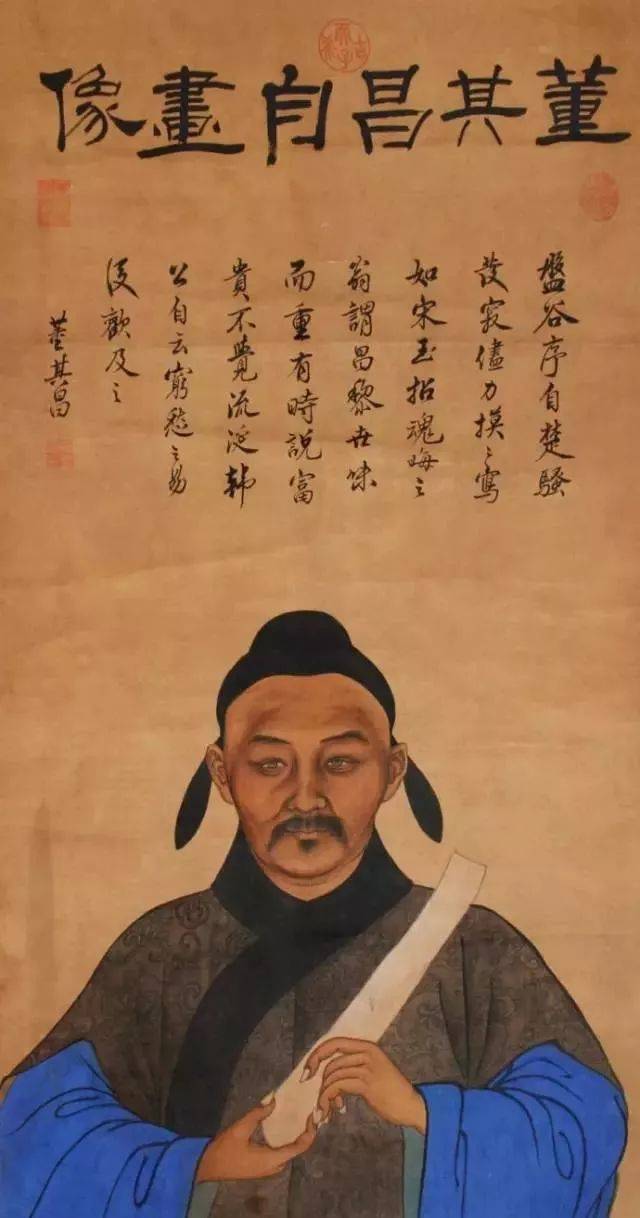 董其昌自畫像
盤谷序自楚騷
發寂儘力摸〻寫
如宋玉招魂晦之
翁謂昌黎世味
而重有時說富
貴不覺流涎韓
公自云窮愁之易
復歡及之
董其昌